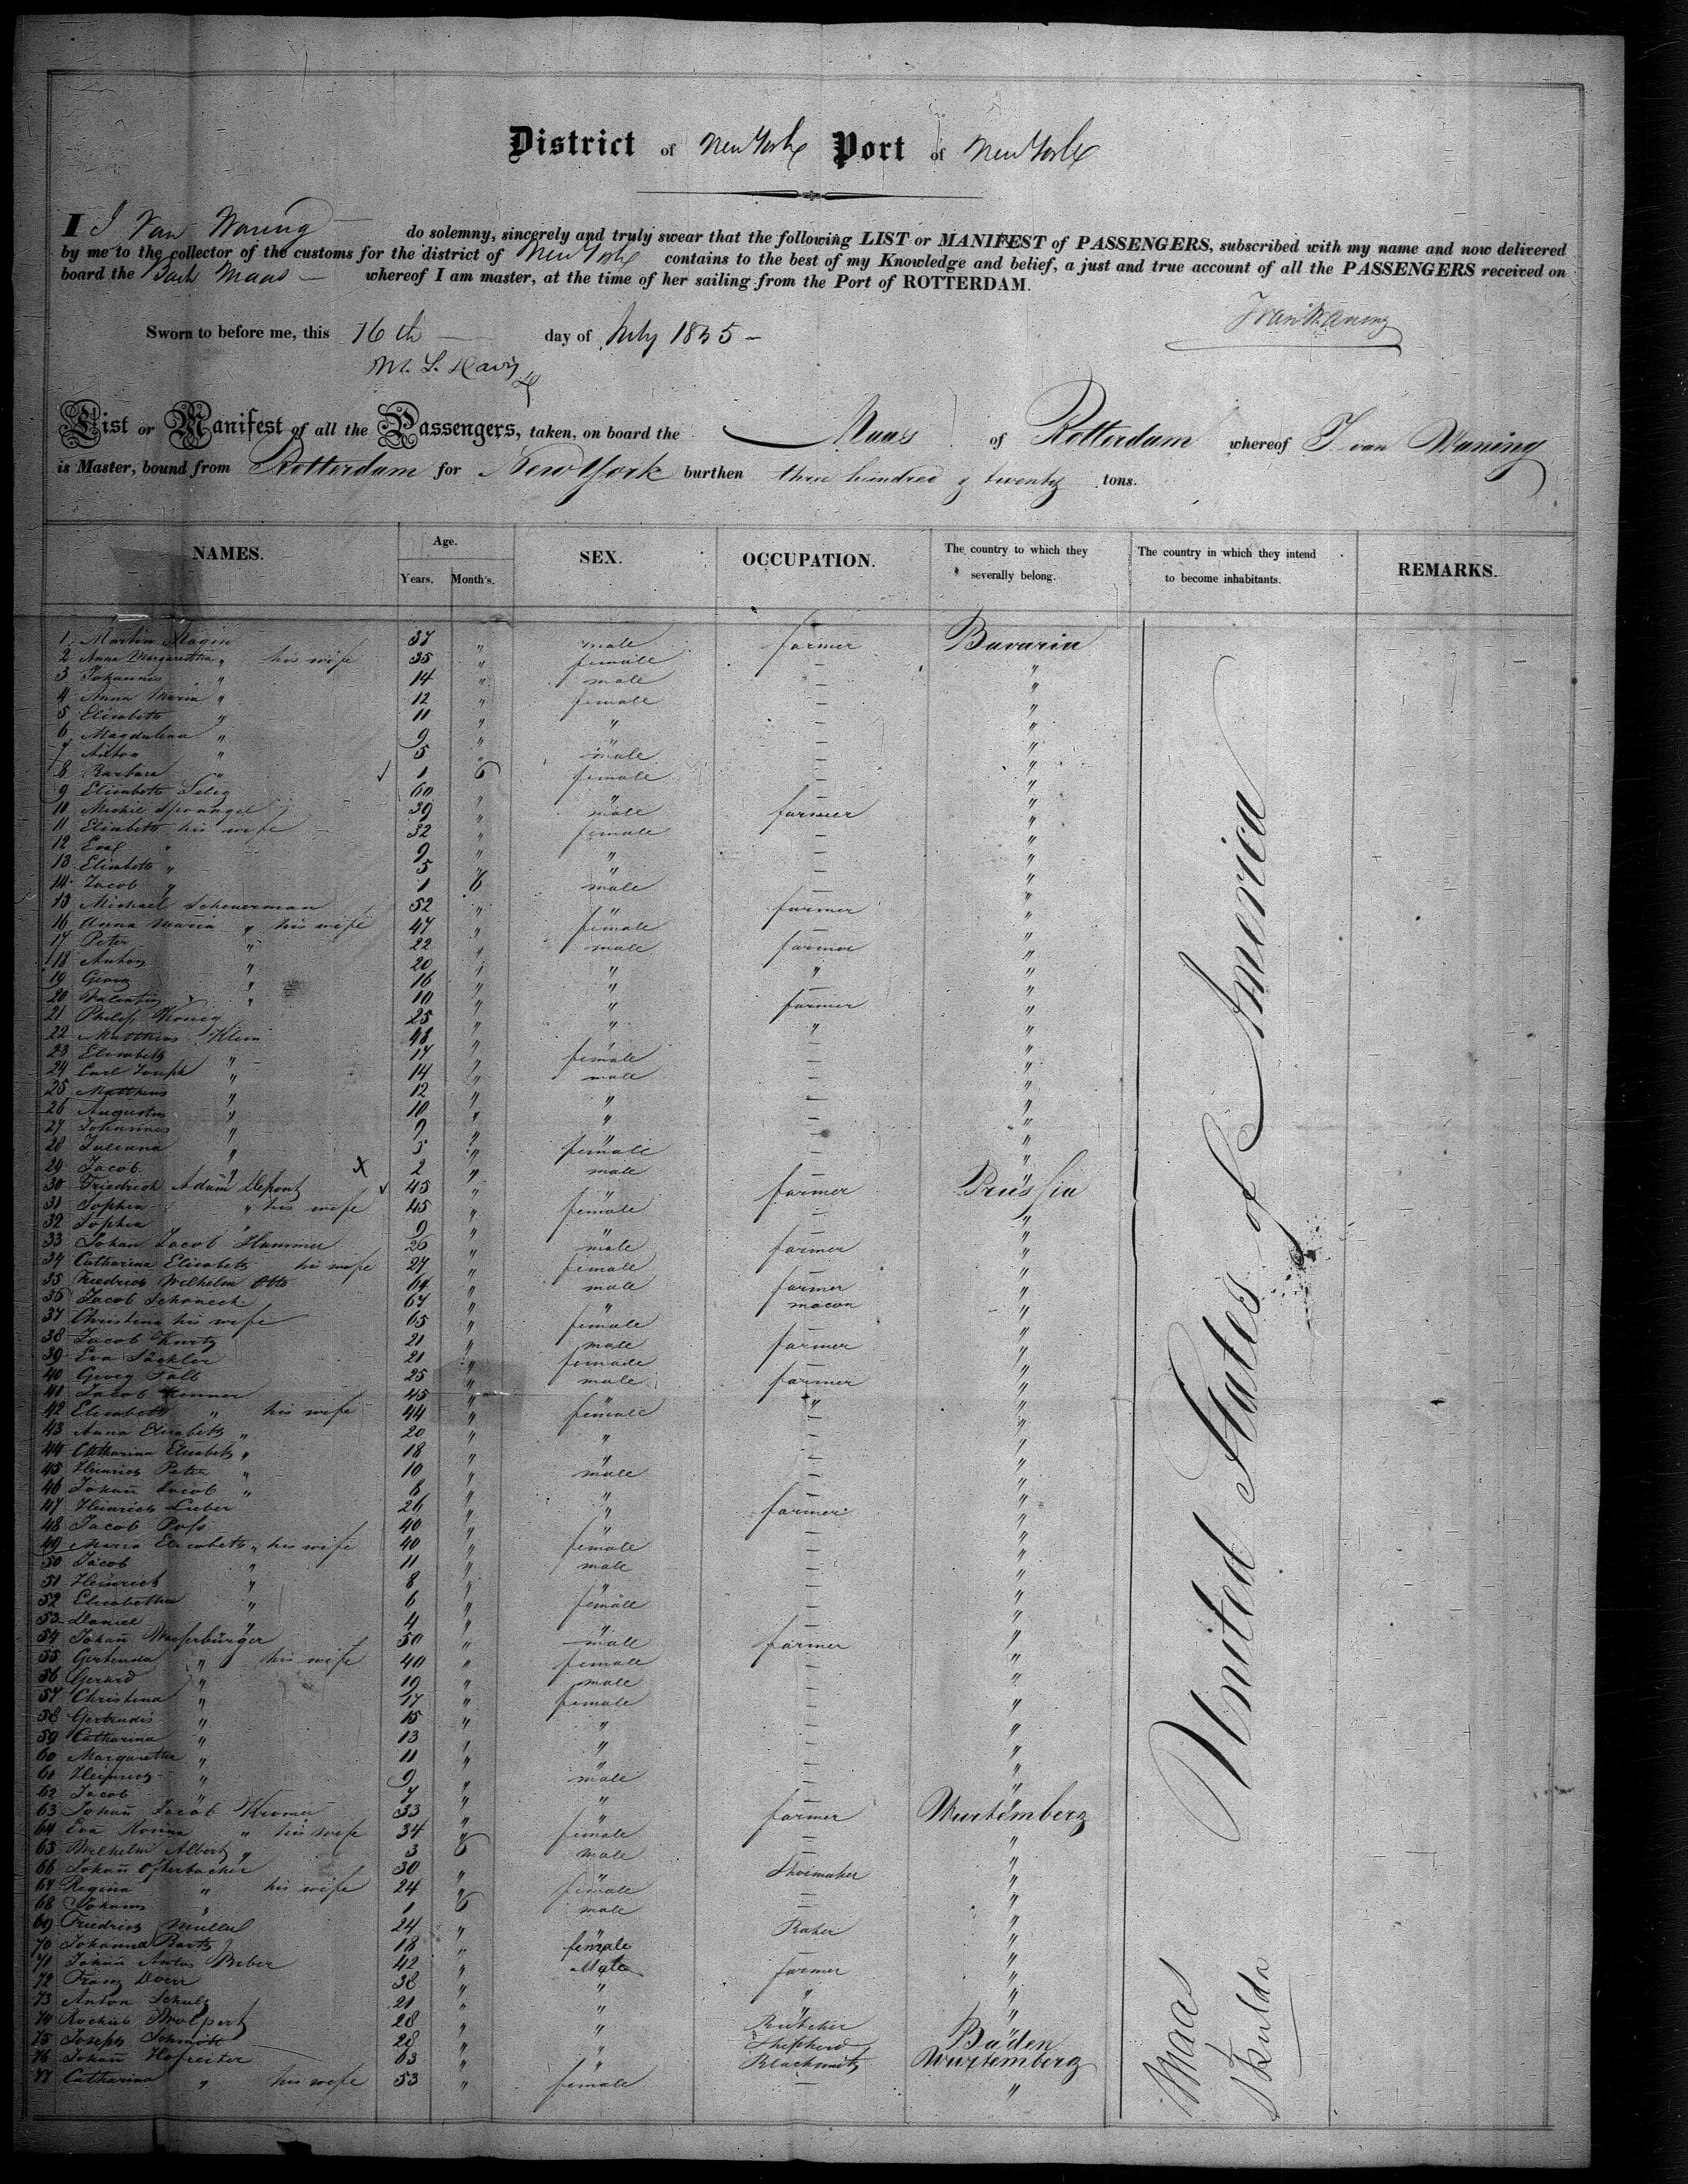 District of New York Port of New York
I J Van Waning do solemny, sincerely and truly swear that the following LIST or MANIFEST of PASSENGERS, subscribed with my name and now delivered
by me to the collector of the customs for the district of New York contains to the best of my Knowledge and belief, a just and true account of all the PASSENGERS received on
board the Maas whereof I am master, at the time of her sailing from the Port of ROTTERDAM.
J van Waning
Sworn to before me, this 16th day of July 1835
M. L. Davis
List or Manifest of all the Passengers, taken, on board the Maas of Rotterdam whereof J. van Waning
is Master, bound from Rotterdam for New York burthen three hundred & twenty tons.
NAMES. Age. Years. Month's. SEX. OCCUPATION. The country to which they severally belong. The country in which they intend to become inhabitants. REMARKS.
1 Martin Magin 37 " male farmer Bavaria
2 Anna Margaretha " his wife 35 " female — "
3 Johannes " 14 " male — "
4 Anna Maria " 12 " female — "
5 Elisabeth " 11 " " — "
6 Magdalena " 9 " " — "
7 Anton " 5 " male — "
8 Barbara " 1 6 female — "
9 Elisabeth Selig 60 " " — "
10 Michel 39 " male farmer "
11 Elisabeth his wife 32 " female — "
12 Eva " 9 " " — "
13 Elisabeth " 5 " " — "
14 Jacob " 1 6 male — "
15 Michael Scheuerman 52 " " farmer "
16 Anna Maria " his wife 47 " female — "
17 Peter " 22 " male farmer "
18 Anton " 20 " " " "
19 Georg " 16 " " — "
20 Valentin " 10 " " — "
21 Philip König 25 " " farmer "
22 Matthias Klein 48 " " " "
23 Elisabeth " 17 " female — "
24 Carl Joseph " 14 " male — "
25 Matthias " 12 " " — "
26 Augustus " 10 " " — "
27 Johannes " 9 " " — "
28 Juliana " 5 " female — "
29 Jacob " 2 " male — "
30 Friedrich Adam 45 " " farmer Prussia
31 Sophia " his wife 45 " female — "
32 Sophia " 9 " " — "
33 Johan Jacob Hammer 26 " male farmer "
34 Catharina Elisabeth his wife 27 " female — "
35 Friedrich Wilhelm Otto 64 " male farmer "
36 Jacob Schoneck 67 " " macon "
37 Christina his wife 65 " female — "
38 Jacob Kurtz 21 " male farmer "
39 Eva Säckler 21 " female — "
40 Georg Falb 25 " male farmer "
41 Jacob 45 " " " "
42 Elisabeth " his wife 44 " female — "
43 Anna Elisabeth " 20 " " — "
44 Catharina Elisabeth " 18 " " — "
45 Heinrich Peter " 10 " male — "
46 Johañ Jacob " 6 " " — "
47 Heinrich Lieber 26 " " farmer "
48 Jacob Poss 40 " " — "
49 Maria Elisabeth " his wife 40 " female — "
50 Jacob " 11 " male — "
51 Heinrich " 8 " " — "
52 Elisabetha " 6 " female — "
53 Daniel " 4 " " — "
54 Johañ Wasserbürger 50 " male farmer "
55 Gertruda " his wife 40 " female — "
56 Gerard " 19 " male — "
57 Christina " 17 " female — "
58 Gertrudis " 15 " " — "
59 Catharina " 13 " " — "
60 Margaretha " 11 " " — "
61 Heinrich " 9 " male — "
62 Jacob " 7 " " — "
63 Johañ Jacob Kromer 33 " " farmer Wurtemberg
64 Eva Rosina " his wife 34 " female — "
65 Wilhelm Albert " 3 6 male — "
66 Johañ Ofterbacher 30 " " Shoimaker "
67 Regina " his wife 24 " female — "
68 Johans " 1 6 male — "
69 Friedrich Muller 24 " " Baker "
70 Johanna Bartz 18 " female "
71 Johañ Anton Biber 42 " Male farmer "
72 Franz Doerr 38 " " " "
73 Anton Schulz 21 " " " "
74 Rochus Wolpert 28 " " Butcher "
75 Joseph Schmidt 28 " " Shepherd Baden
76 Johañ Hofreiter 63 " " Blacksmith Wurtemberg
77 Catharina " his wife 53 " female — "
United States of America
Maas